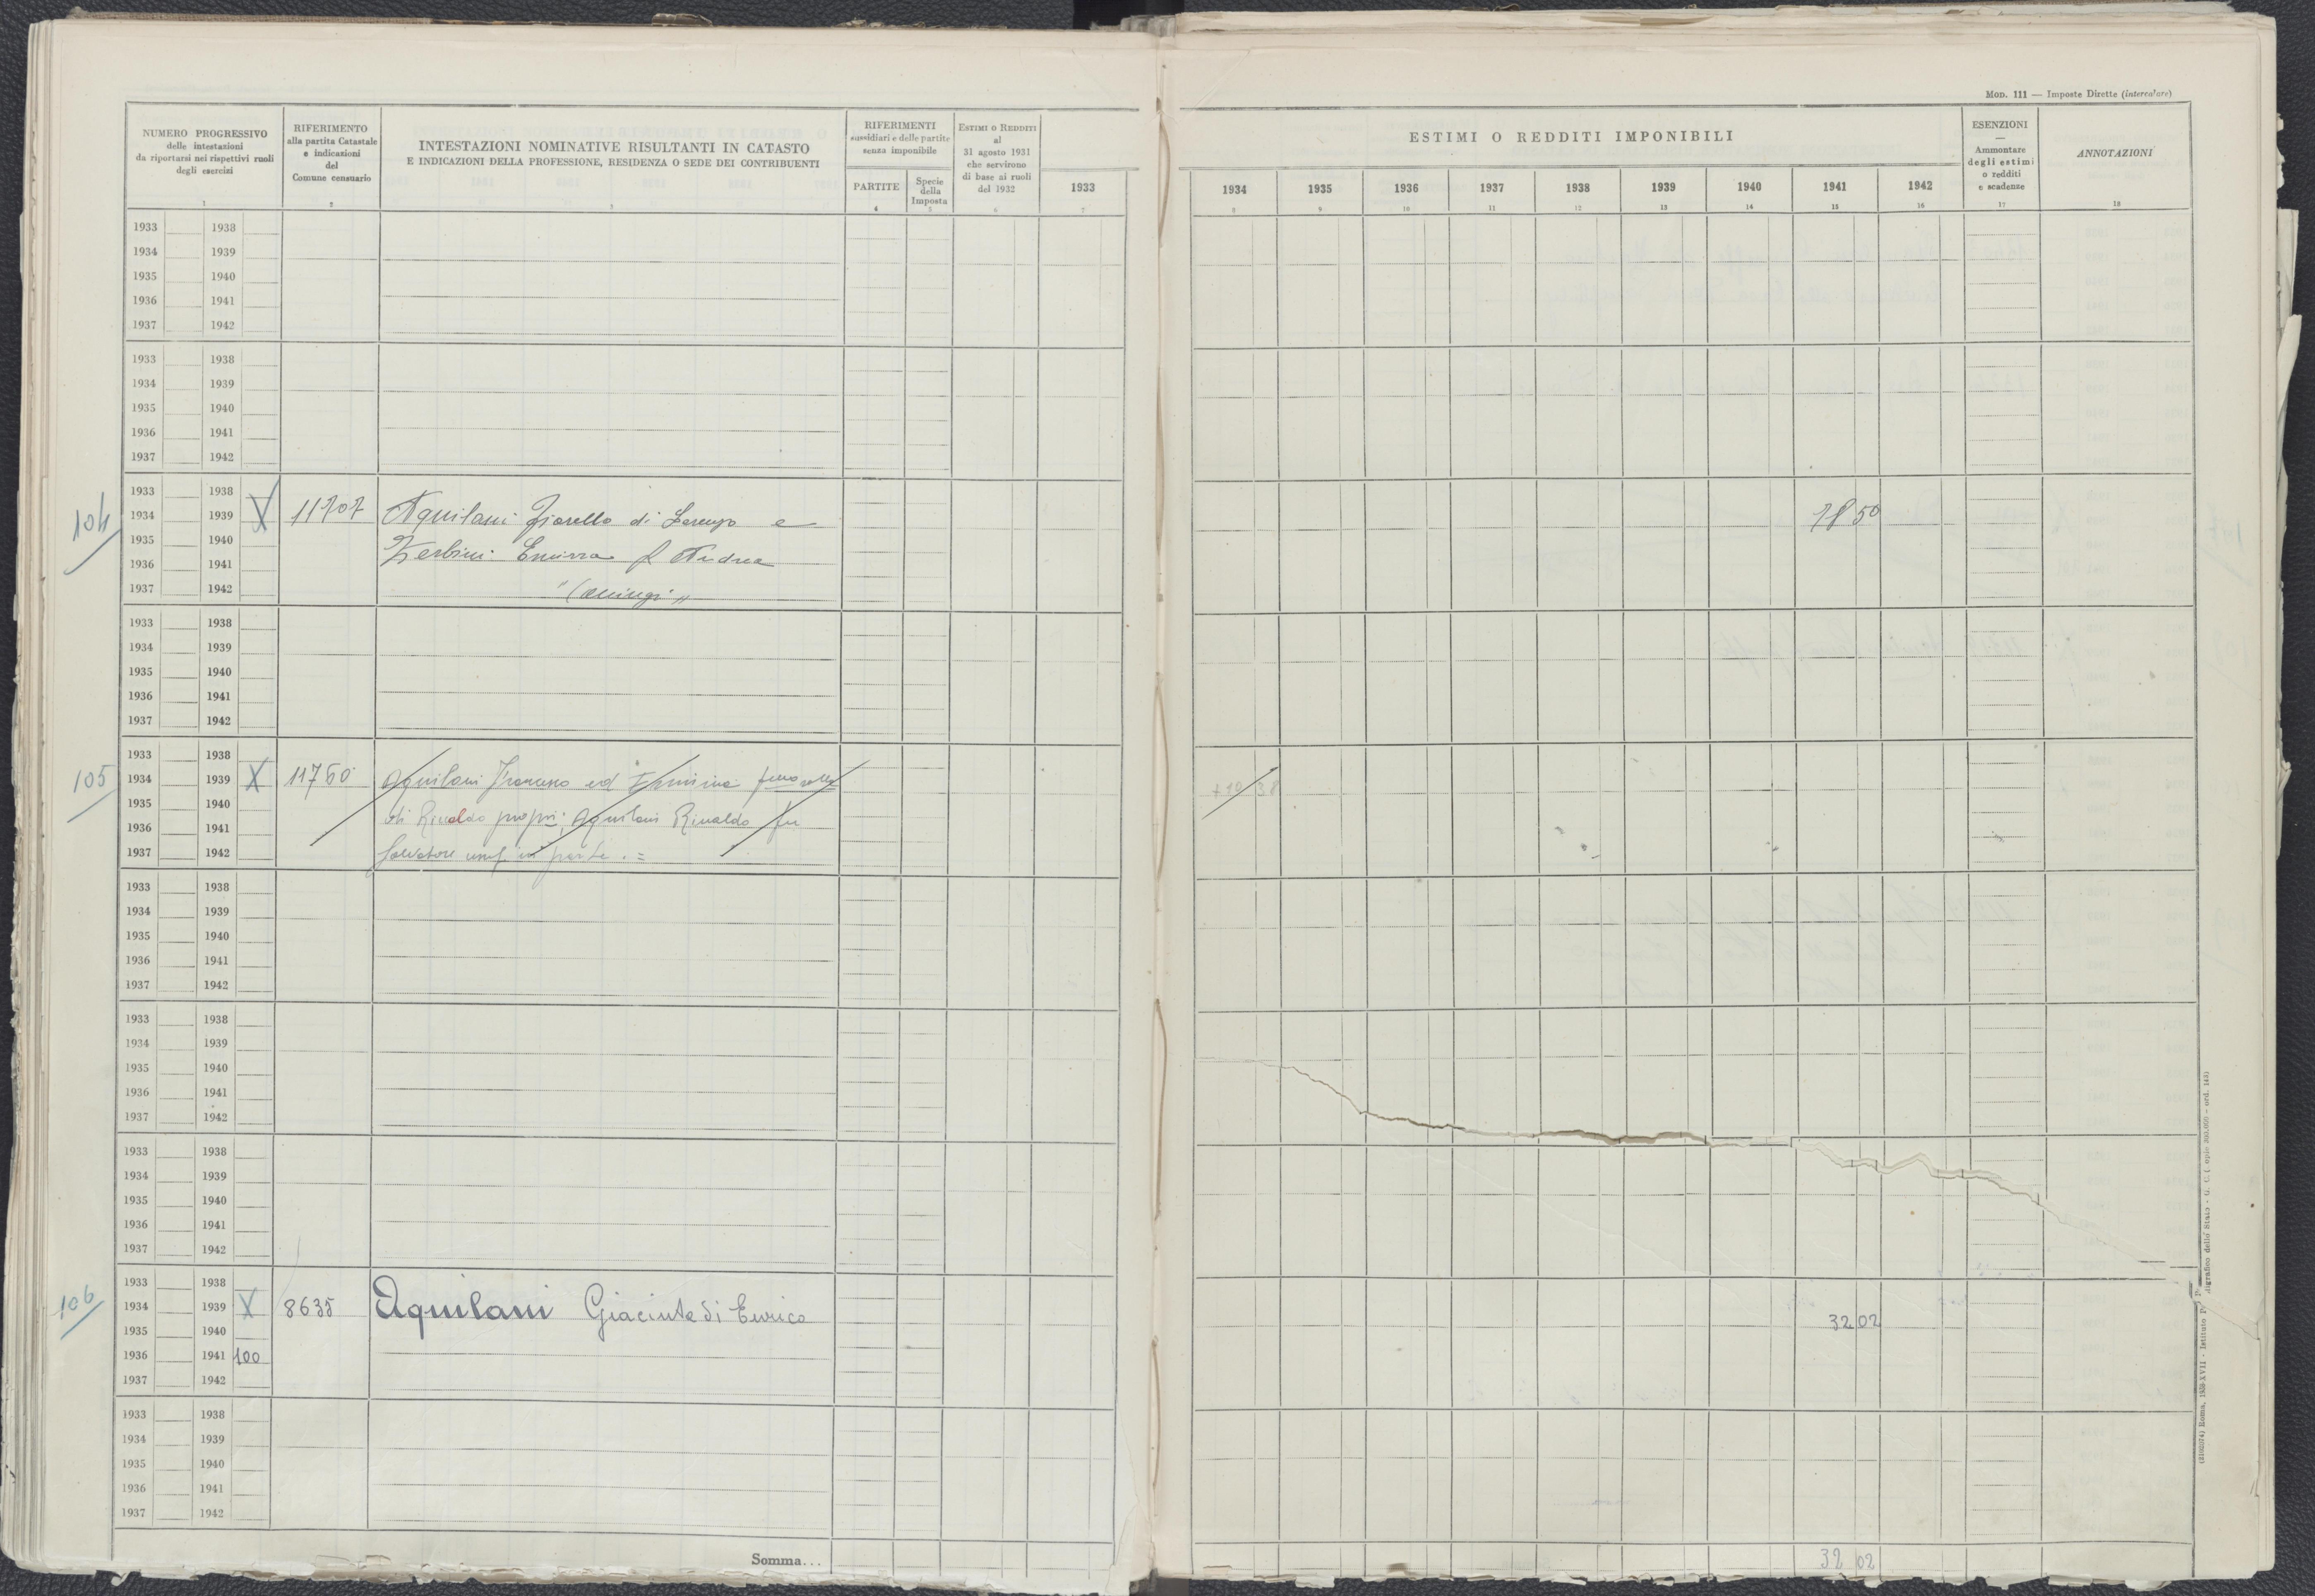 Mod. 111 — Imposte Dirette (intercalare)
NUMERO PROGRESSIVO
delle intestazioni
da riportarsi nei rispettivi ruoli
degli esercizi
1
RIFERIMENTO
alla partita Catastale
e indicazioni
del
Comune censuario
2
INTESTAZIONI NOMINATIVE RISULTANTI IN CATASTO
E INDICAZIONI DELLA PROFESSIONE, RESIDENZA O SEDE DEI CONTRIBUENTI
3
RIFERIMENTI
sussidiari e delle partite
senza imponibile
PARTITE
4
Specie
della
Imposta
5
ESTIMI O REDDITI
al
31 agosto 1931
che servirono
di base ai ruoli
del 1932
6
1933
7
ESTIMI O REDDITI IMPONIBILI
1934 1935 1936 1937 1938 1939 1940 1941 1942
8 9 10 11 12 13 14 15 16
ESENZIONI
—
Ammontare
degli estimi
o redditi
e scadenze
17
ANNOTAZIONI
18
1933 1938
1934 1939
1935 1940
1936 1941
1937 1942
1933 1938
1934 1939
1935 1940
1936 1941
1937 1942
104
1933 1938 X
1934 1939 11707 Aquilani Fiorello di Lorenzo e 78 50
1935 1940 Zerbini
1936 1941 f Andrea
1937 1942
1933 1938
1934 1939
1935 1940
1936 1941
1937 1942
105
1933 1938
1934 1939 X 11760 Aquilani Francesco ed Erminia
1935 1940 di Rinaldo propri: Aquilani Rinaldo fu
1936 1941
1937 1942 Salvatore usuf in parte . =
1933 1938
1934 1939
1935 1940
1936 1941
1937 1942
1933 1938
1934 1939
1935 1940
1936 1941
1937 1942
1933 1938
1934 1939
1935 1940
1936 1941
1937 1942
106
1933 1938
1934 1939 X 8635 Aquilani Giacinta di Enrico 32 02
1935 1940
1936 1941 100
1937 1942
1933 1938
1934 1939
1935 1940
1936 1941
1937 1942
Somma... 32 02